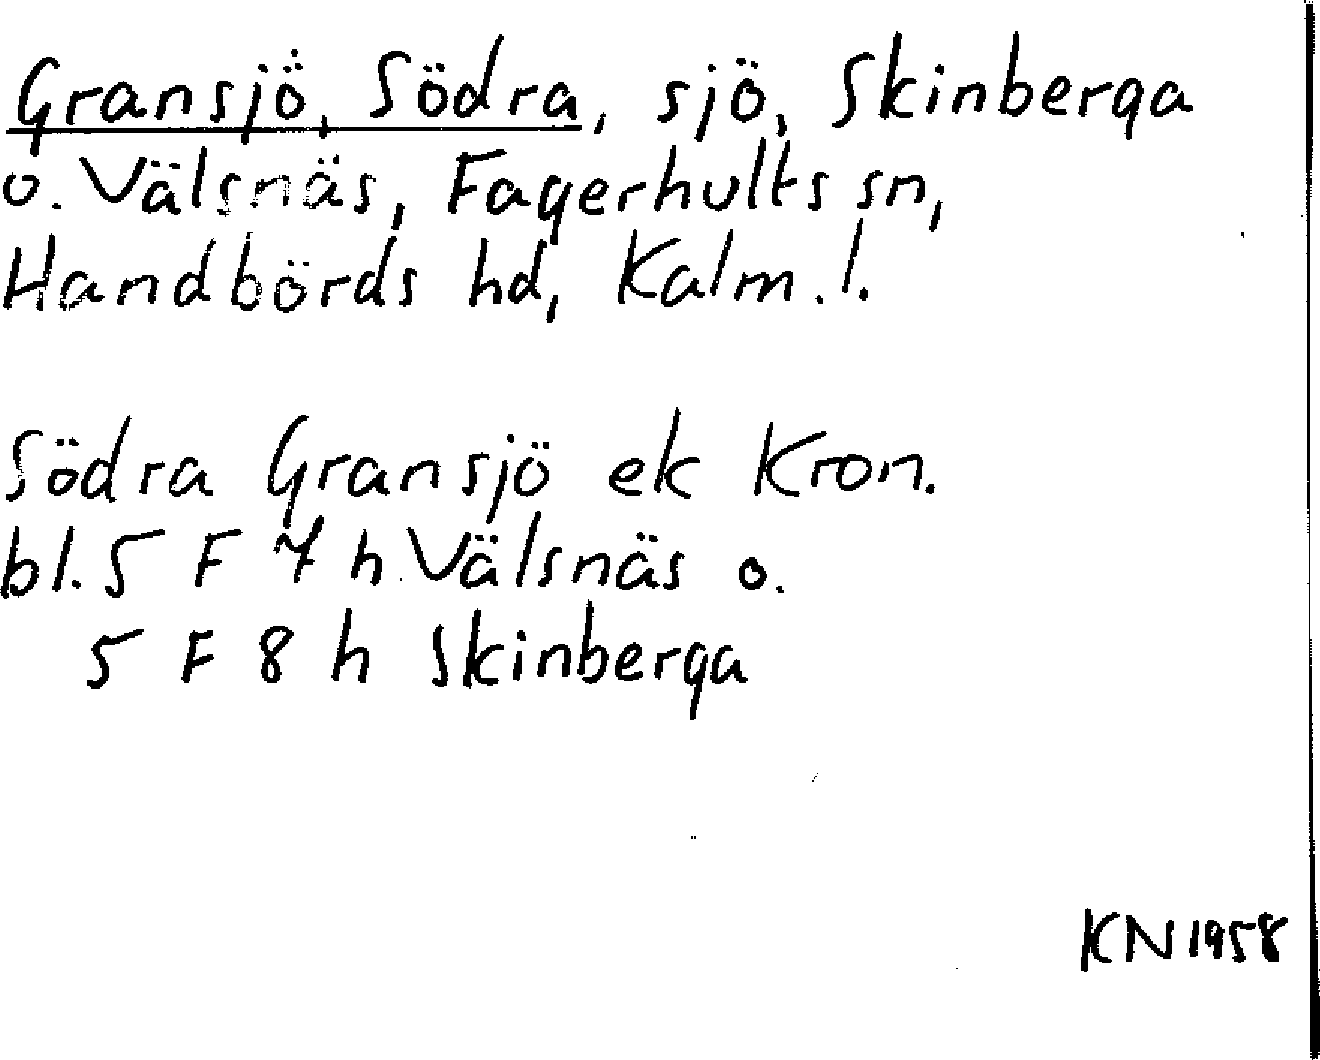 Gransjö, Södra, sjö, Skinberga
o. Välsnäs, Fagerhults sn,
Handbörds hd, Kalm. l.
Södra Gransjö ek Kron.
bl. 5 F 7 h Välsnäs o.
5 F 8 h Skinberga
KN 1958